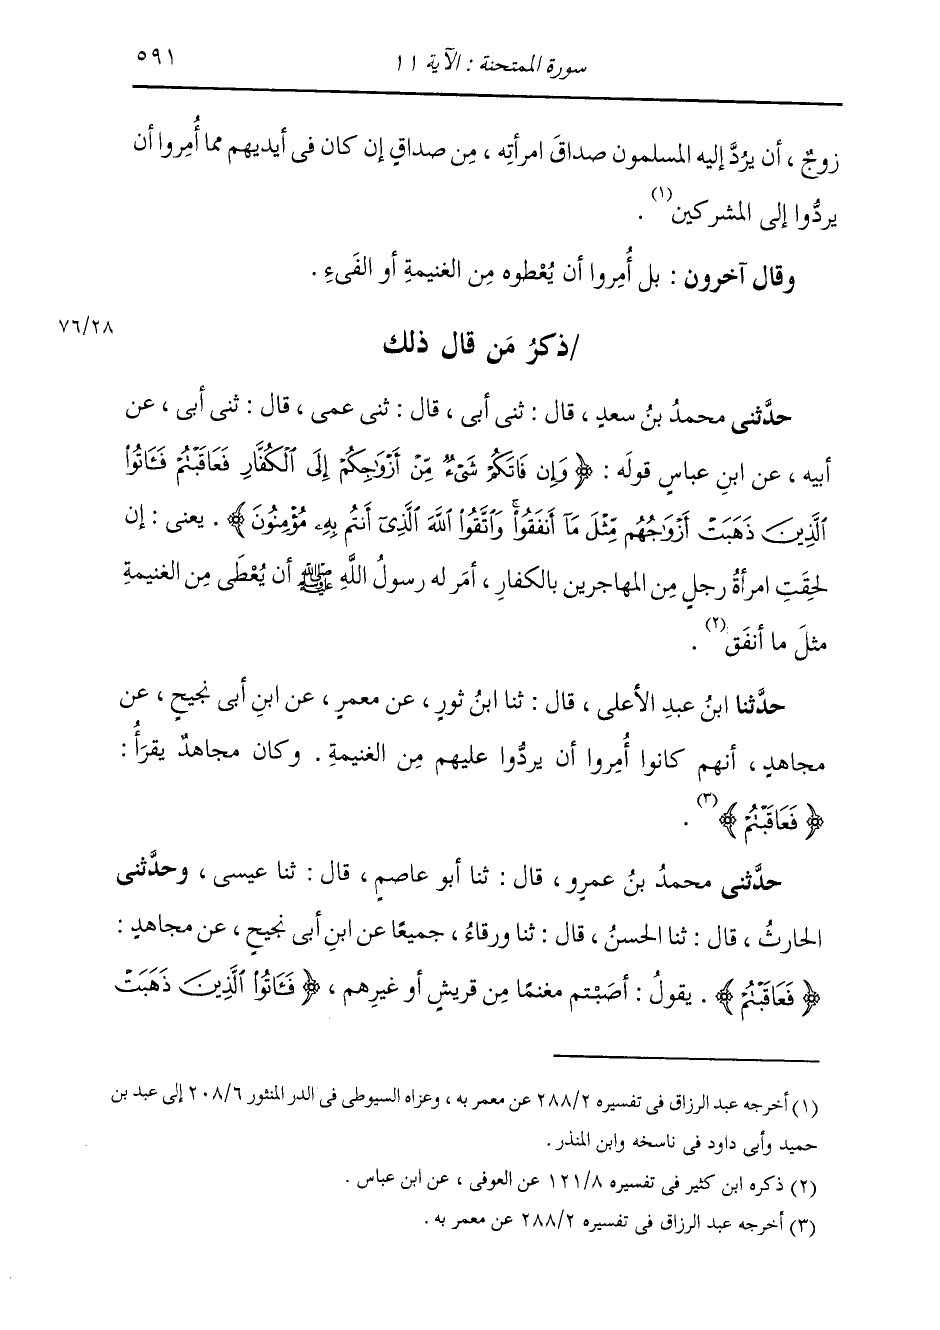 سورة الممتحنة : الآية ١١
٥٩١
زوجٌ ، أن يرُدَّ إليه المسلمون صداقَ امرأتِه ، مِن صداقٍ إن كان فى أيديهم مما أُمِروا أن
يردُّوا إلى المشركين(١) .
وقال آخرون : بل أُمِروا أن يُعْطوه مِن الغنيمةِ أو الفَىءِ .
٧٦/٢٨
/ذكرُ مَن قال ذلك
حدَّثنى محمدُ بنُ سعدٍ ، قال : ثنى أبى ، قال : ثنى عمى ، قال : ثنى أبى ، عن
أبيه ، عن ابنِ عباسٍ قولَه : ﴿ وَإِن فَاتَكُمْ شَىْءٌ مِّنْ أَزْوَٰجِكُمْ إِلَى ٱلْكُفَّارِ فَعَاقَبْتُمْ فَـَٔاتُوا۟
ٱلَّذِينَ ذَهَبَتْ أَزْوَٰجُهُم مِّثْلَ مَآ أَنفَقُوا۟ ۚ وَٱتَّقُوا۟ ٱللَّهَ ٱلَّذِىٓ أَنتُم بِهِۦ مُؤْمِنُونَ ﴾ . يعنى : إن
لحِقَتِ امرأةُ رجلٍ مِن المهاجرين بالكفارِ ، أمَر له رسولُ اللَّهِ ﷺ أن يُعْطَى مِن الغنيمةِ
مثلَ ما أنفَق(٢) .
حدَّثنا ابنُ عبدِ الأعلى ، قال : ثنا ابنُ ثورٍ ، عن معمرٍ ، عن ابنِ أبى نجيحٍ ، عن
مجاهدٍ ، أنهم كانوا أُمِروا أن يردُّوا عليهم مِن الغنيمةِ . وكان مجاهدٌ يقرَأُ :
﴿ فَعَاقَبْتُمْ ﴾(٣) .
حدَّثنى محمدُ بنُ عمرٍو ، قال : ثنا أبو عاصمٍ ، قال : ثنا عيسى ، وحدَّثنى
الحارثُ ، قال : ثنا الحسنُ ، قال : ثنا ورقاءُ ، جميعًا عن ابنِ أبى نجيحٍ ، عن مجاهدٍ :
﴿ فَعَاقَبْتُمْ ﴾ . يقولُ : أصَبْتم مغنمًا مِن قريشٍ أو غيرِهم ، ﴿ فَـَٔاتُوا۟ ٱلَّذِينَ ذَهَبَتْ
(١) أخرجه عبد الرزاق فى تفسيره ٢٨٨/٢ عن معمر به ، وعزاه السيوطى فى الدر المنثور ٢٠٨/٦ إلى عبد بن
حميد وأبى داود فى ناسخه وابن المنذر .
(٢) ذكره ابن كثير فى تفسيره ١٢١/٨ عن العوفى ، عن ابن عباس .
(٣) أخرجه عبد الرزاق فى تفسيره ٢٨٨/٢ عن معمر به .